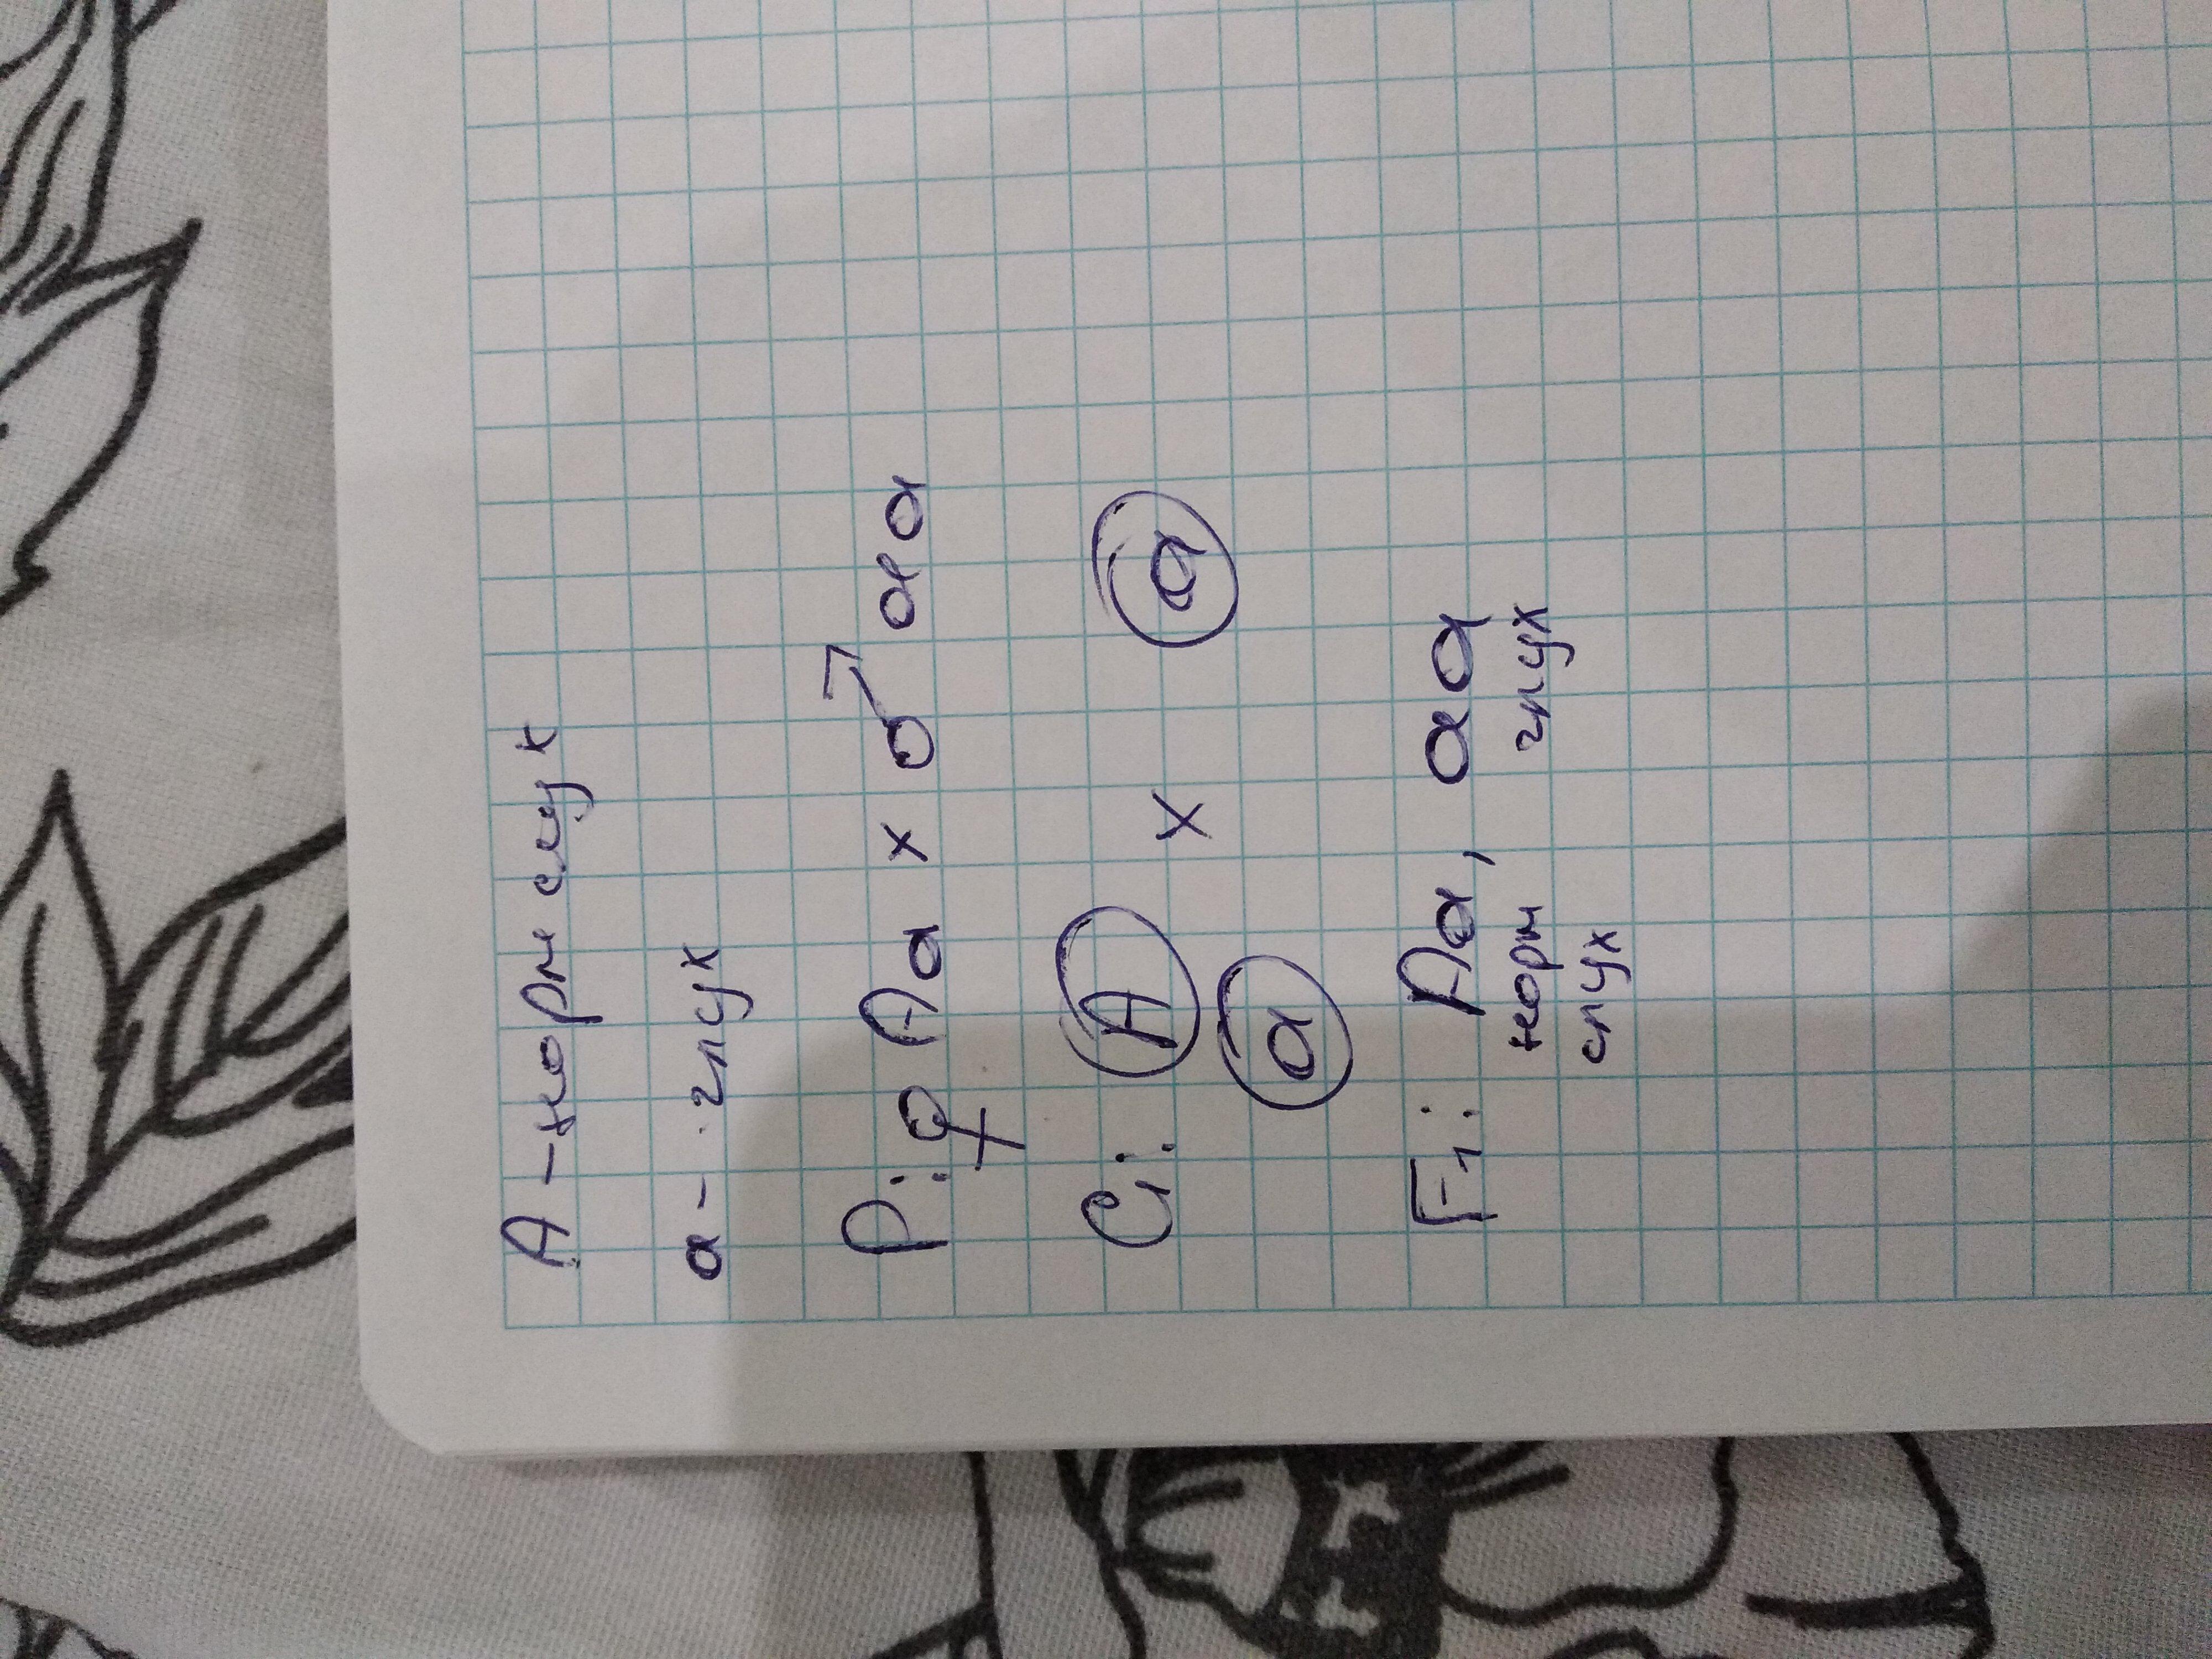 A - норм слух
a - глух
P: ♀ Aa x ♂ aa
G: A x a
a
F1: Aa, aa
норм глух
слух